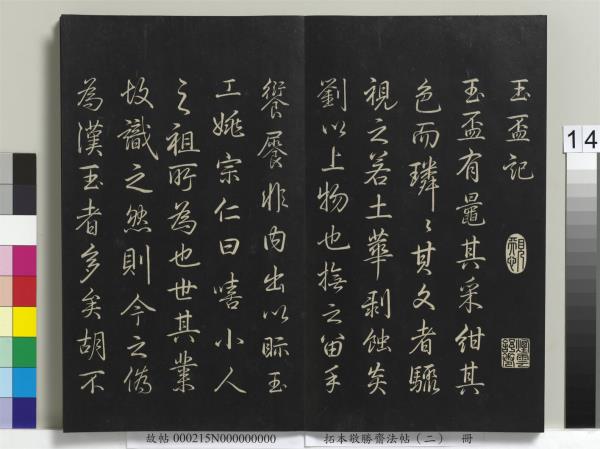 玉盃記
玉盃有其采紺其
色而璘〻其文者驟
視之若土華剥蝕炎
劉以上物也撫之留手
非内出以眎玉
工姚宗仁曰嘻小人
之祖所為也世其業
故識之然則今之偽
為漢玉者多矣胡不
14
故帖 000215N000000000
拓本敬勝齋法帖(二) 冊